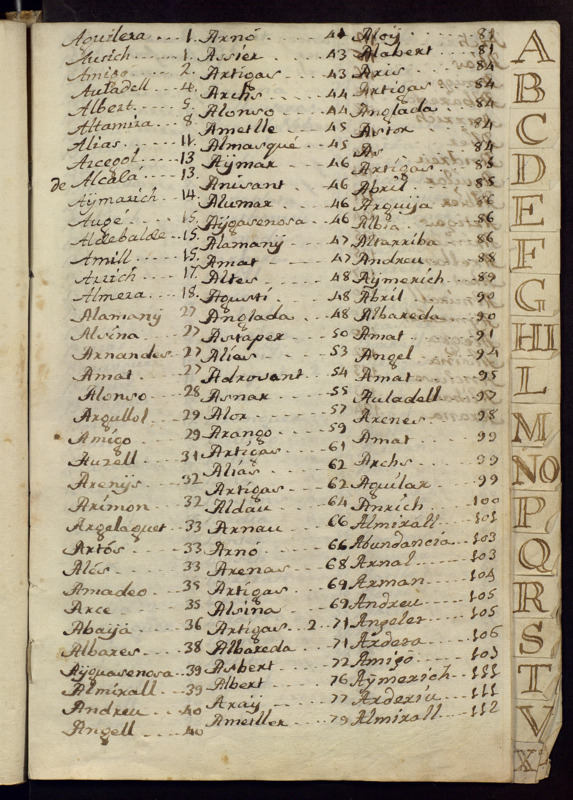 Aguilera 1.
Aurich 1.
Amigo 2.
Auladell 4.
Albert 5.
Altamira 8
Alias 11.
Arcegol 13
de Alcalá 13.
Aÿmarich 14.
Augé 15.
Aldebalde 15.
Amill 15.
Arrich 17.
Almera 18.
Alamanÿ 27
Alsina 27
Arnandes 27
Amat 27
Alonso 28
Argullol 29
Amigo 29
Auzell 31
Arenÿs 32
Arimon 32
Argelaguet 33
Artós 33
Alós 33
Amadeo 35
Arce 35
Abaÿa 36
Albares 38
Aÿguasenosa 39
Almirall 39
Andreu 40
Angell 40
Arnó 41
Assier 43
Artigas 43
Archs 44
Alonso 44
Ametlle 45
Almasqué 45
Aÿmar 46
Anusant 46
Alumar 46
Aÿgasenosa 46
Alamanÿ 47
Amat 47
Altes 48
Agustí 48
Anglada 48
Astaper 50
Alies 53
Adrovant 54
Asnar 55
Alor 57
Arango 59
Artigas 61
Aliás 62
Artigas 62
Aldau 64
Arnau 66
Arnó 66
Arenas 68
Artigas 69
Alsina 69
Artigas 2 71
Albareda 71
Asbert 72
Albert 76
Araÿ 77
Ametller 79
Aloÿ 81
Alabert 81
Aris 84
Artigas 84
Anglada 84
Astor 84
As 84
Artigas 85
Abril 85
Arquija 86
Albia 86
Altarriba 86
Andreu 88
Aÿmerich 89
Abril 90
Albareda 90
Amat 91
Angel 94
Amat 95
Auladell 97
Arenes 98
Amat 99
Archs 99
Aguilar 99
Anrich 100
Almirall 101
Abundancia 103
Arnal 103
Arman 104
Andreu 105
Angeler 105
Ardera 106
Amigó 103
Aÿmerich 111
Arderiu 111
Almirall 112
A
B
C
D
E
F
G
HI
L
M
NO
P
Q
R
S
T
V
X